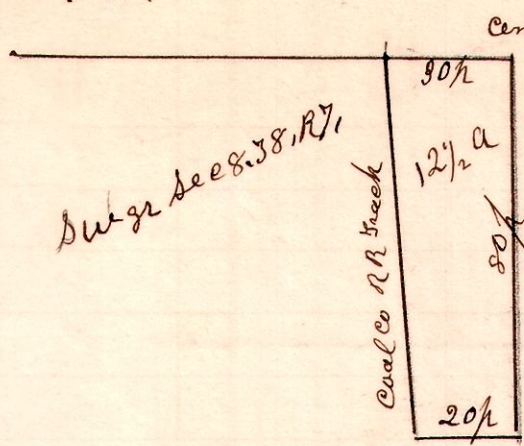 cen
30p
12½ a
Sw qr Sec 8.38, R7,
Coal Co RR Track
80p
20p